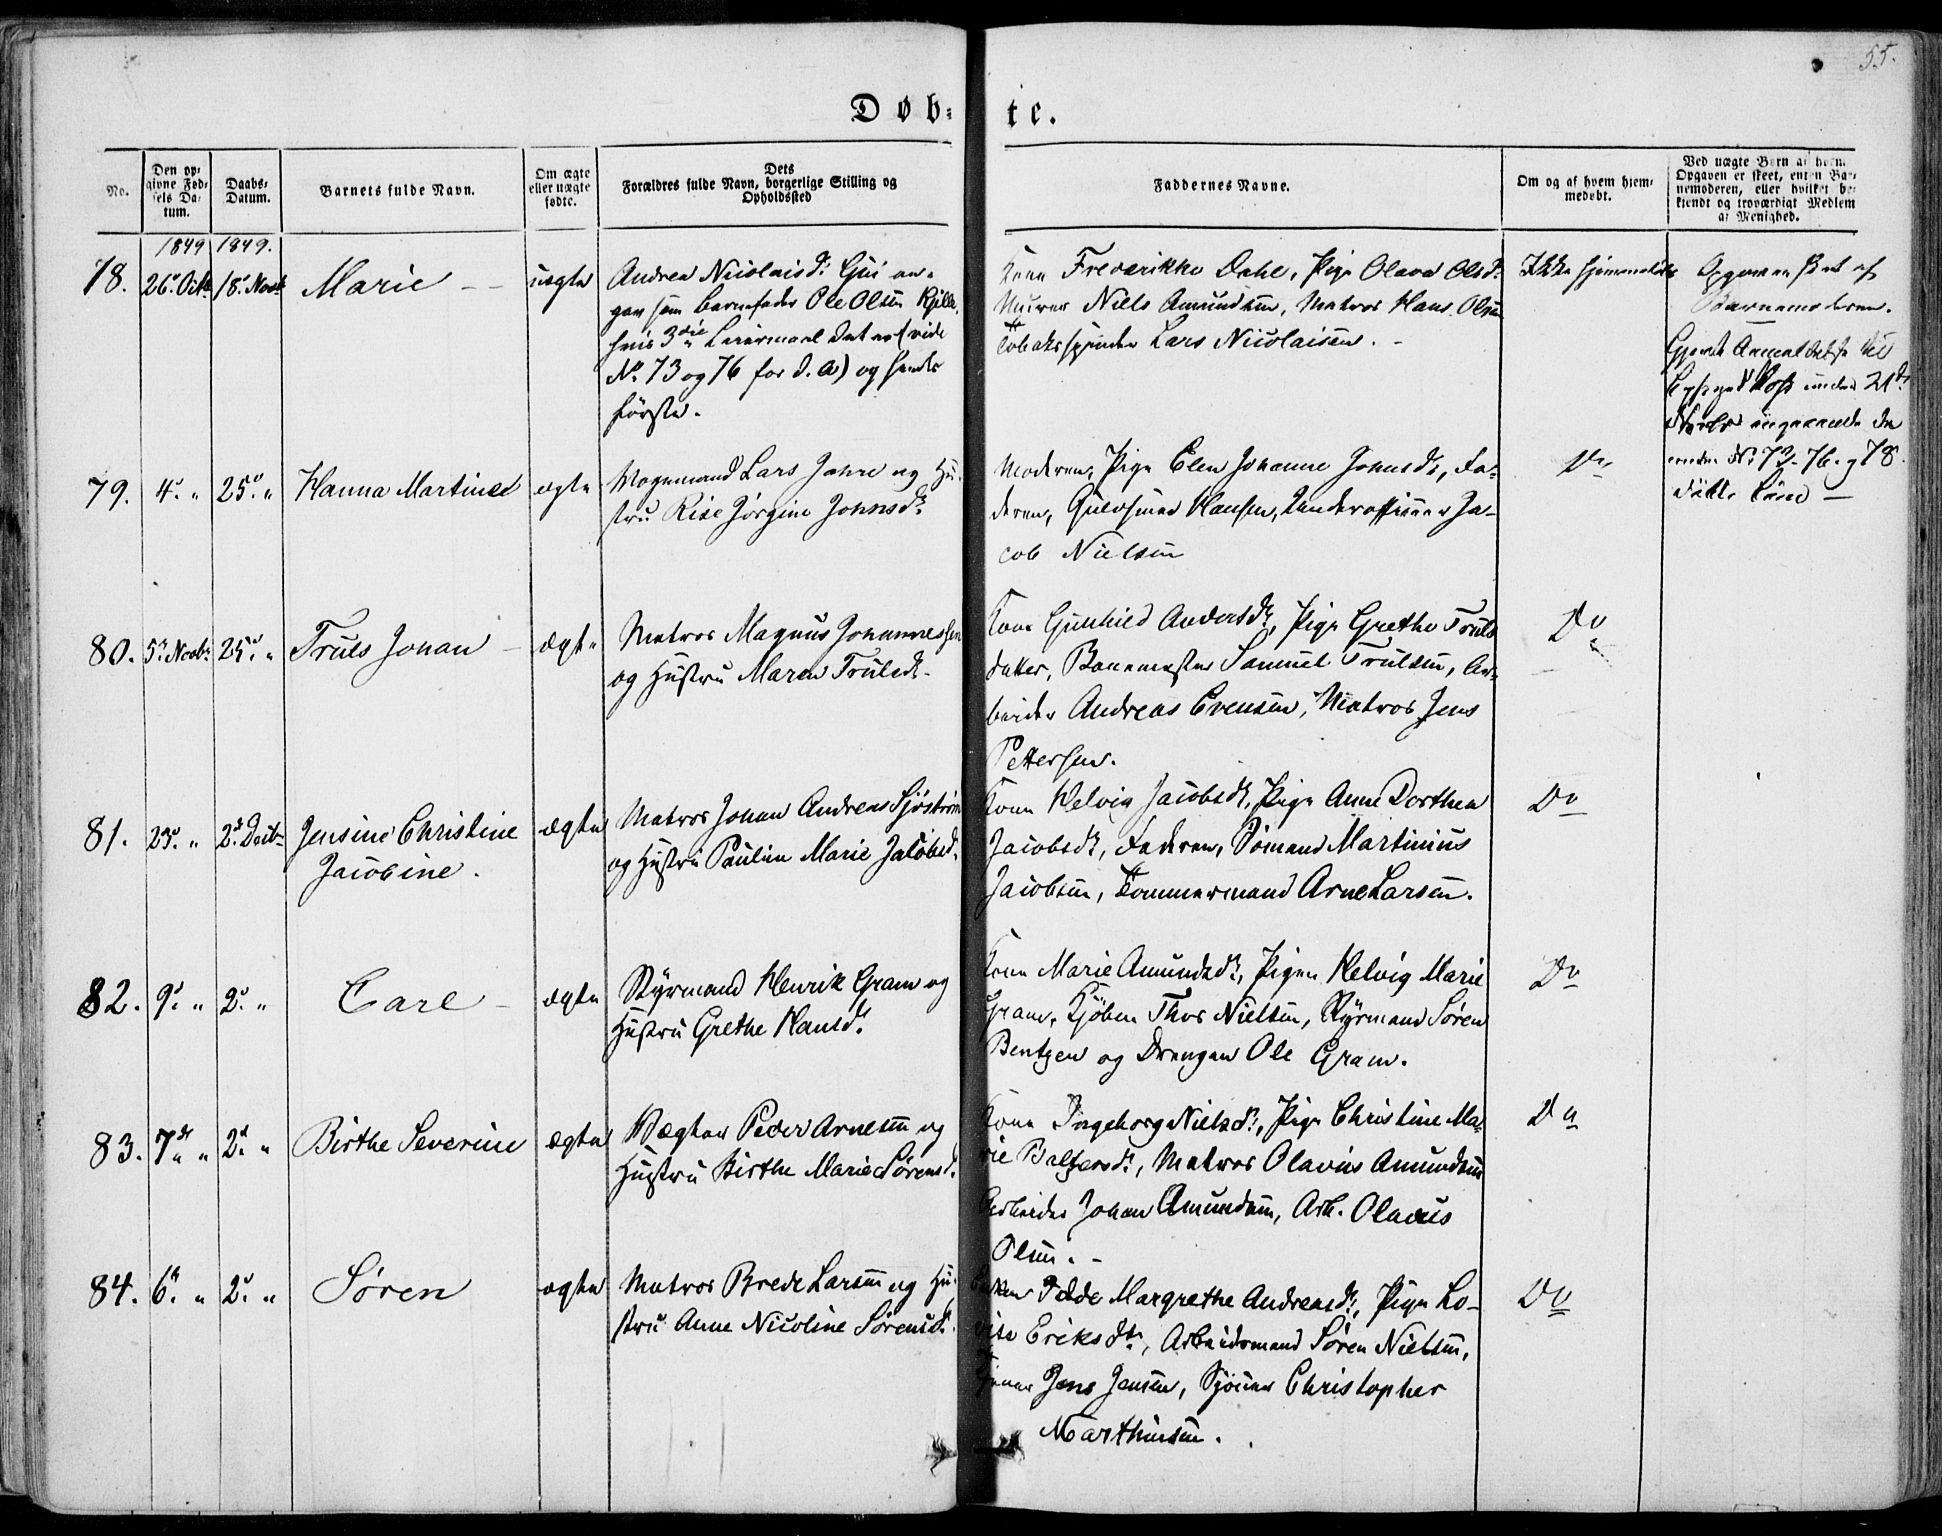 55.
Døb- te.
No.
Den op-
givne Fød-
sels Da-
tum.
Daabs-
Datum.
Barnets fulde Navn.
Om ægte
eller uægte
fødte.
Dets
Forældres fulde Navn, borgerlige Stilling og
Opholdssted
Faddernes Navne.
Om og af hvem hjem-
medøbt.
Ved uægte Børn af hvem
Opgaven er skeet, enten Bar-
nemoderen, eller hvilket be-
kjendt og troværdigt Medlem
af Menighed.
1849 1849.
78. 26de Octb. 18de Novb. Marie uægte
Andrea Nicolaisd. Gui an-
gav som Barnefader Ole Olsen
hvis 3die Leiermaal det er (vide
No. 73 og 76 for d. A) og hendes
første.
Kone Frederikke Dahl, Pige Olava Olsd.
Murer Niels Amundsen, Matros Hans Olsen
Tobaksspinder Lars Nicolaisen.
Ikke hjemmedøbt
Opgaven skeet af
Barnemoderen.
Gjort Anmeldelse til
under 21de
No 73. 76. og 78
døbte Børn
79. 4. " 25. " Hanna Martinea ægte
Vognmand Lars Jahre og Hu-
stru Rise Jørgine Johnsd.
Moderen, Pige Elen Johanne Johnsd., Fa-
deren, Guldsmed Hansen, Underofficeer Ja-
cob Nielsen
Do
80. 5. Novb. 25. " Truls Johan ægte
Matros Magnus Johannessen
og Hustru Maren Trulsd.
Kone Gunhild Andersd., Pige Grethe Truls
datter, Baanemester Samuel Trulsen, Ar-
beider Andreas Evensen, Matros Jens
Pettersen.
Do
81. 23. " 2. Decb. Jensine Christine
Jacobine.
ægte
Matros Johan Andreas Sjöström
og Hustru Pauline Marie Jacobsd.
Kone Helvig Jacobsd., Pige Anne Dorthea
Jacobsd., Faderen, Sömand Martinius
Jacobsen, Tømmermand Arne Larsen.
Do
82. 9. " 2. " Carl ægte
Styrmand Henrik Gram og
Hustru Grethe Hansd.
Kone Marie Amundsd., Pigen Helvig Marie
Gram, Kjöbm Thor Nielsen, Styrmand Sören
Bentzen og Drengen Ole Gram.
Do
83. 7de " 2. " Birthe Severine ægte
Vægter Peder Arnesen og
Hustru Birthe Marie Sørensd.
Kone Ingeborg Nielsd., Pige Christine Ma-
rie Baltzersd., Matros Olavus Amundsen
Arbeider Johan Amundsen, Arb. Olavus
Olsen.
Do
84. 6. " 2. " Søren ægte
Matros Brede Larsen og Hu-
stru Anne Nicoline Sørensd.
Enken Margrethe Andreasd., Pige Lo-
vise Eriksdtr., Arbeidsmand Søren Nielsen,
Tjener Jens Jensen, Christopher
Marthinsen.
Do